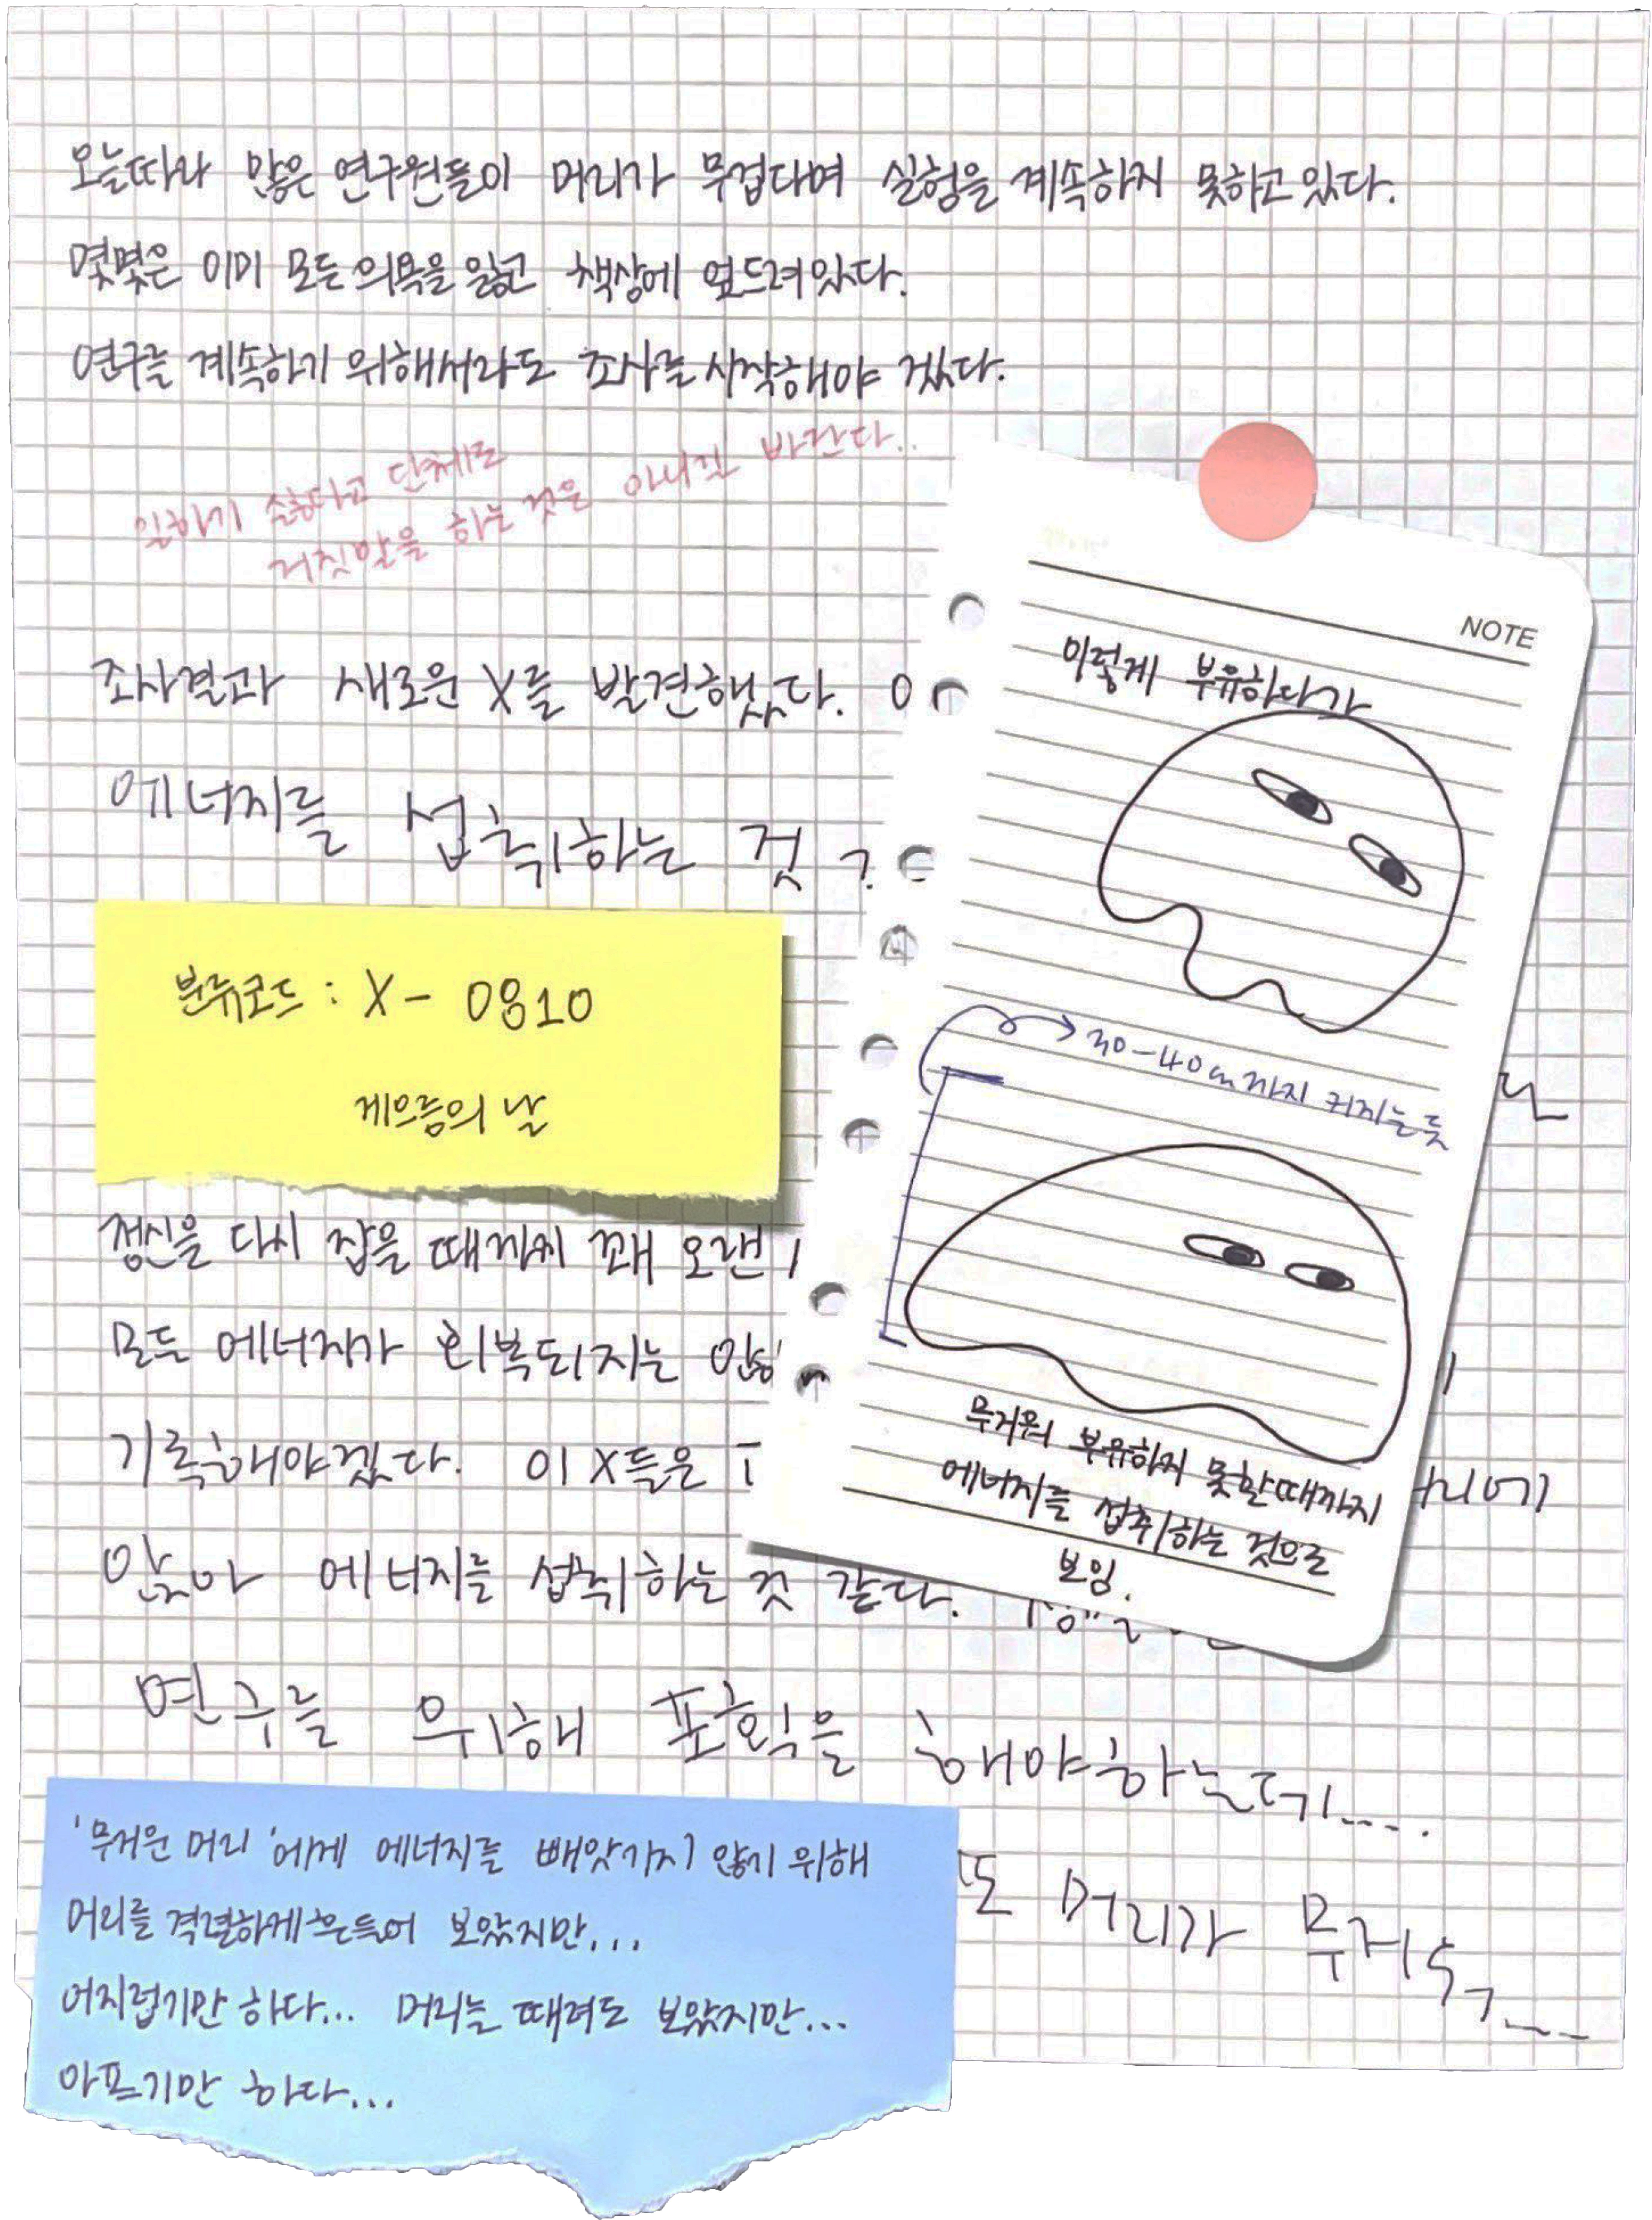 오늘따라 많은 연구원들이 머리가 무겁다며 실험을 계속하지 못하고 있다.
몇몇은 이미 모든 의욕을 잃고 책상에 엎드려있다.
연구를 계속하기 위해서라도 조사를 시작해야 겠다.
일하기 싫다고 단체로
거짓말을 하는 것은 아니길 바란다..
조사결과 새로운 X를 발견했다.
에너지를 섭취하는 것
분류코드 : X - 0810
게으름의 날
정신을 다시 잡을 때까지 꽤 오랜
모든 에너지가 회복되지는
기록해야겠다. 이 X들은
앉아 에너지를 섭취하는 것 같다.
연구를 위해 포획을 해야하는데....
머리가 무거워....
'무거운 머리'에게 에너지를 빼앗기지 않기 위해
머리를 격렬하게 흔들어 보았지만...
어지럽기만 하다... 머리를 때려도 보았지만...
아프기만 하다...
NOTE
이렇게 부유하다가
30-40cm까지 커지는 듯
무거워 부유하지 못할때까지
에너지를 섭취하는 것으로
보임.